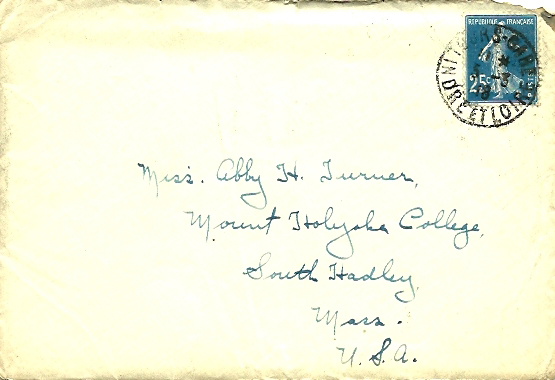 REPUBLIQUE FRANÇAISE
25c
POSTES
TOURS-GARE
INDRE ET LOIRE
Miss. Abby H. Turner,
Mount Holyoke College,
South Hadley,
Mass.
U.S.A.